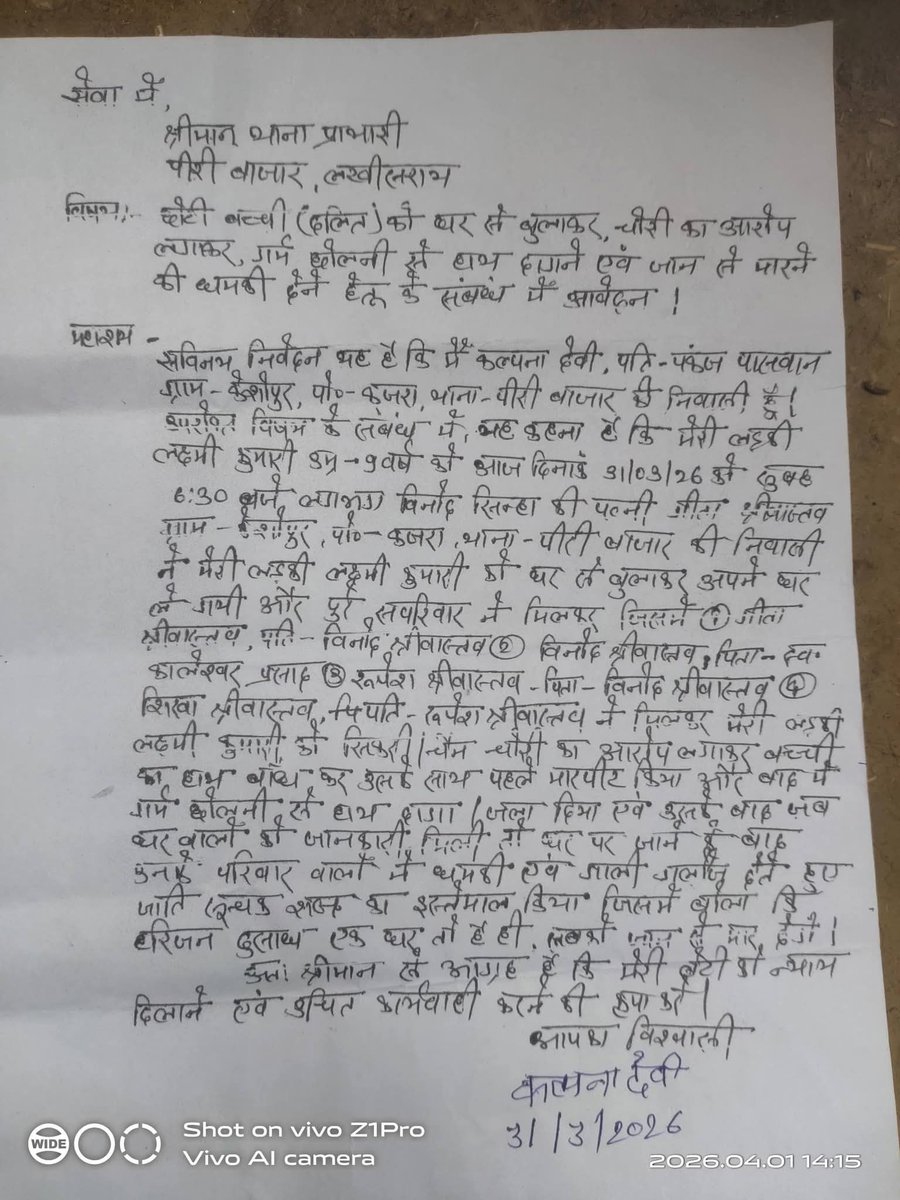 सेवा में,
श्रीमान् थाना प्रभारी
पीरी बाजार, लखीसराय
विषय:- छोटी बच्ची (दलित) को घर से बुलाकर, चोरी का आरोप
लगाकर, गर्म छोलनी से हाथ दागने एवं जान से मारने
की धमकी देने हेतू के संबंध में आवेदन।
महाशय -
सविनय निवेदन यह है कि मैं कल्पना देवी, पति-पंकज पासवान
ग्राम-केशोपुर, पो०-कजरा, थाना-पीरी बाजार की निवासी हूँ।
उपरोक्त विषय के संबंध में, यह कहना है कि मेरी लड़की
लक्ष्मी कुमारी उम्र-9 वर्ष को आज दिनांक 31/03/26 को सुबह
6:30 बजे लगभग विनोद सिन्हा की पत्नी गीता श्रीवास्तव
ग्राम-केशोपुर, पो०-कजरा, थाना-पीरी बाजार की निवासी
ने मेरी लड़की लक्ष्मी कुमारी को घर से बुलाकर अपने घर
ले गयी और पुरे सपरिवार ने मिलकर जिसमें ① गीता
श्रीवास्तव, पति-विनोद श्रीवास्तव ② विनोद श्रीवास्तव, पिता-स्व०
कालेश्वर प्रसाद ③ रूपेश श्रीवास्तव-पिता-विनोद श्रीवास्तव ④
शिखा श्रीवास्तव, पति-रूपेश श्रीवास्तव ने मिलकर मेरी लड़की
लक्ष्मी कुमारी को सिकरी/चैन चोरी का आरोप लगाकर बच्ची
का हाथ बाँध कर उसके साथ पहले मारपीट किया और बाद में
गर्म छोलनी से हाथ दागा/जला दिया एवं उसके बाद जब
घर वालों को जानकारी मिली तो घर पर जाने के बाद
उनके परिवार वालों ने धमकी एवं गाली गलौज देते हुए
जाति सूचक शब्द का इस्तेमाल किया जिसमें बोला कि
हरिजन दुसाध एक घर तो है ही, सबको जान से मार देंगे।
अतः श्रीमान से आग्रह है कि मेरी बेटी को न्याय
दिलाने एवं उचित कार्यवाही करने की कृपा करें।
आपका विश्वासी
कल्पना देवी
31/3/2026
WIDE
Shot on vivo Z1Pro
Vivo AI camera
2026.04.01 14:15